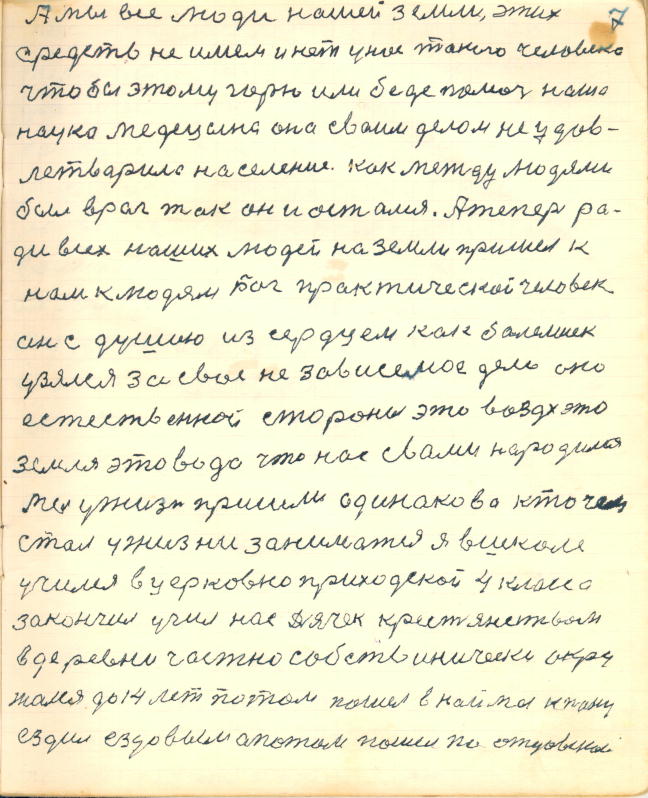 7
А мы все люди нашей земли, этих
средств не имем и нет у нас такого человека
что бы этому горю или беде помоч наша
наука медецина она своим делом не удов-
летварила население. как между людями
был враг так он и остался. А тепер ра-
ди всех наших людей на земли пришел к
нам к людям Бог практический человек
он с душою из сердцем как болельник
узялся за свое не зависемое дело оно
естественной стороны это воздх это
земля это вода что нас свами народила
мы ужизн пришли одинаково кто чем
стал ужизни заниматся я вшколе
училя в церковно приходской 4 класса
закончил учил нас Дячек крестянством
в деревни частно собственически окру
жался до 14 лет потом пошел в наймы к пану
ездил ездовым а потом пошел по отцовской